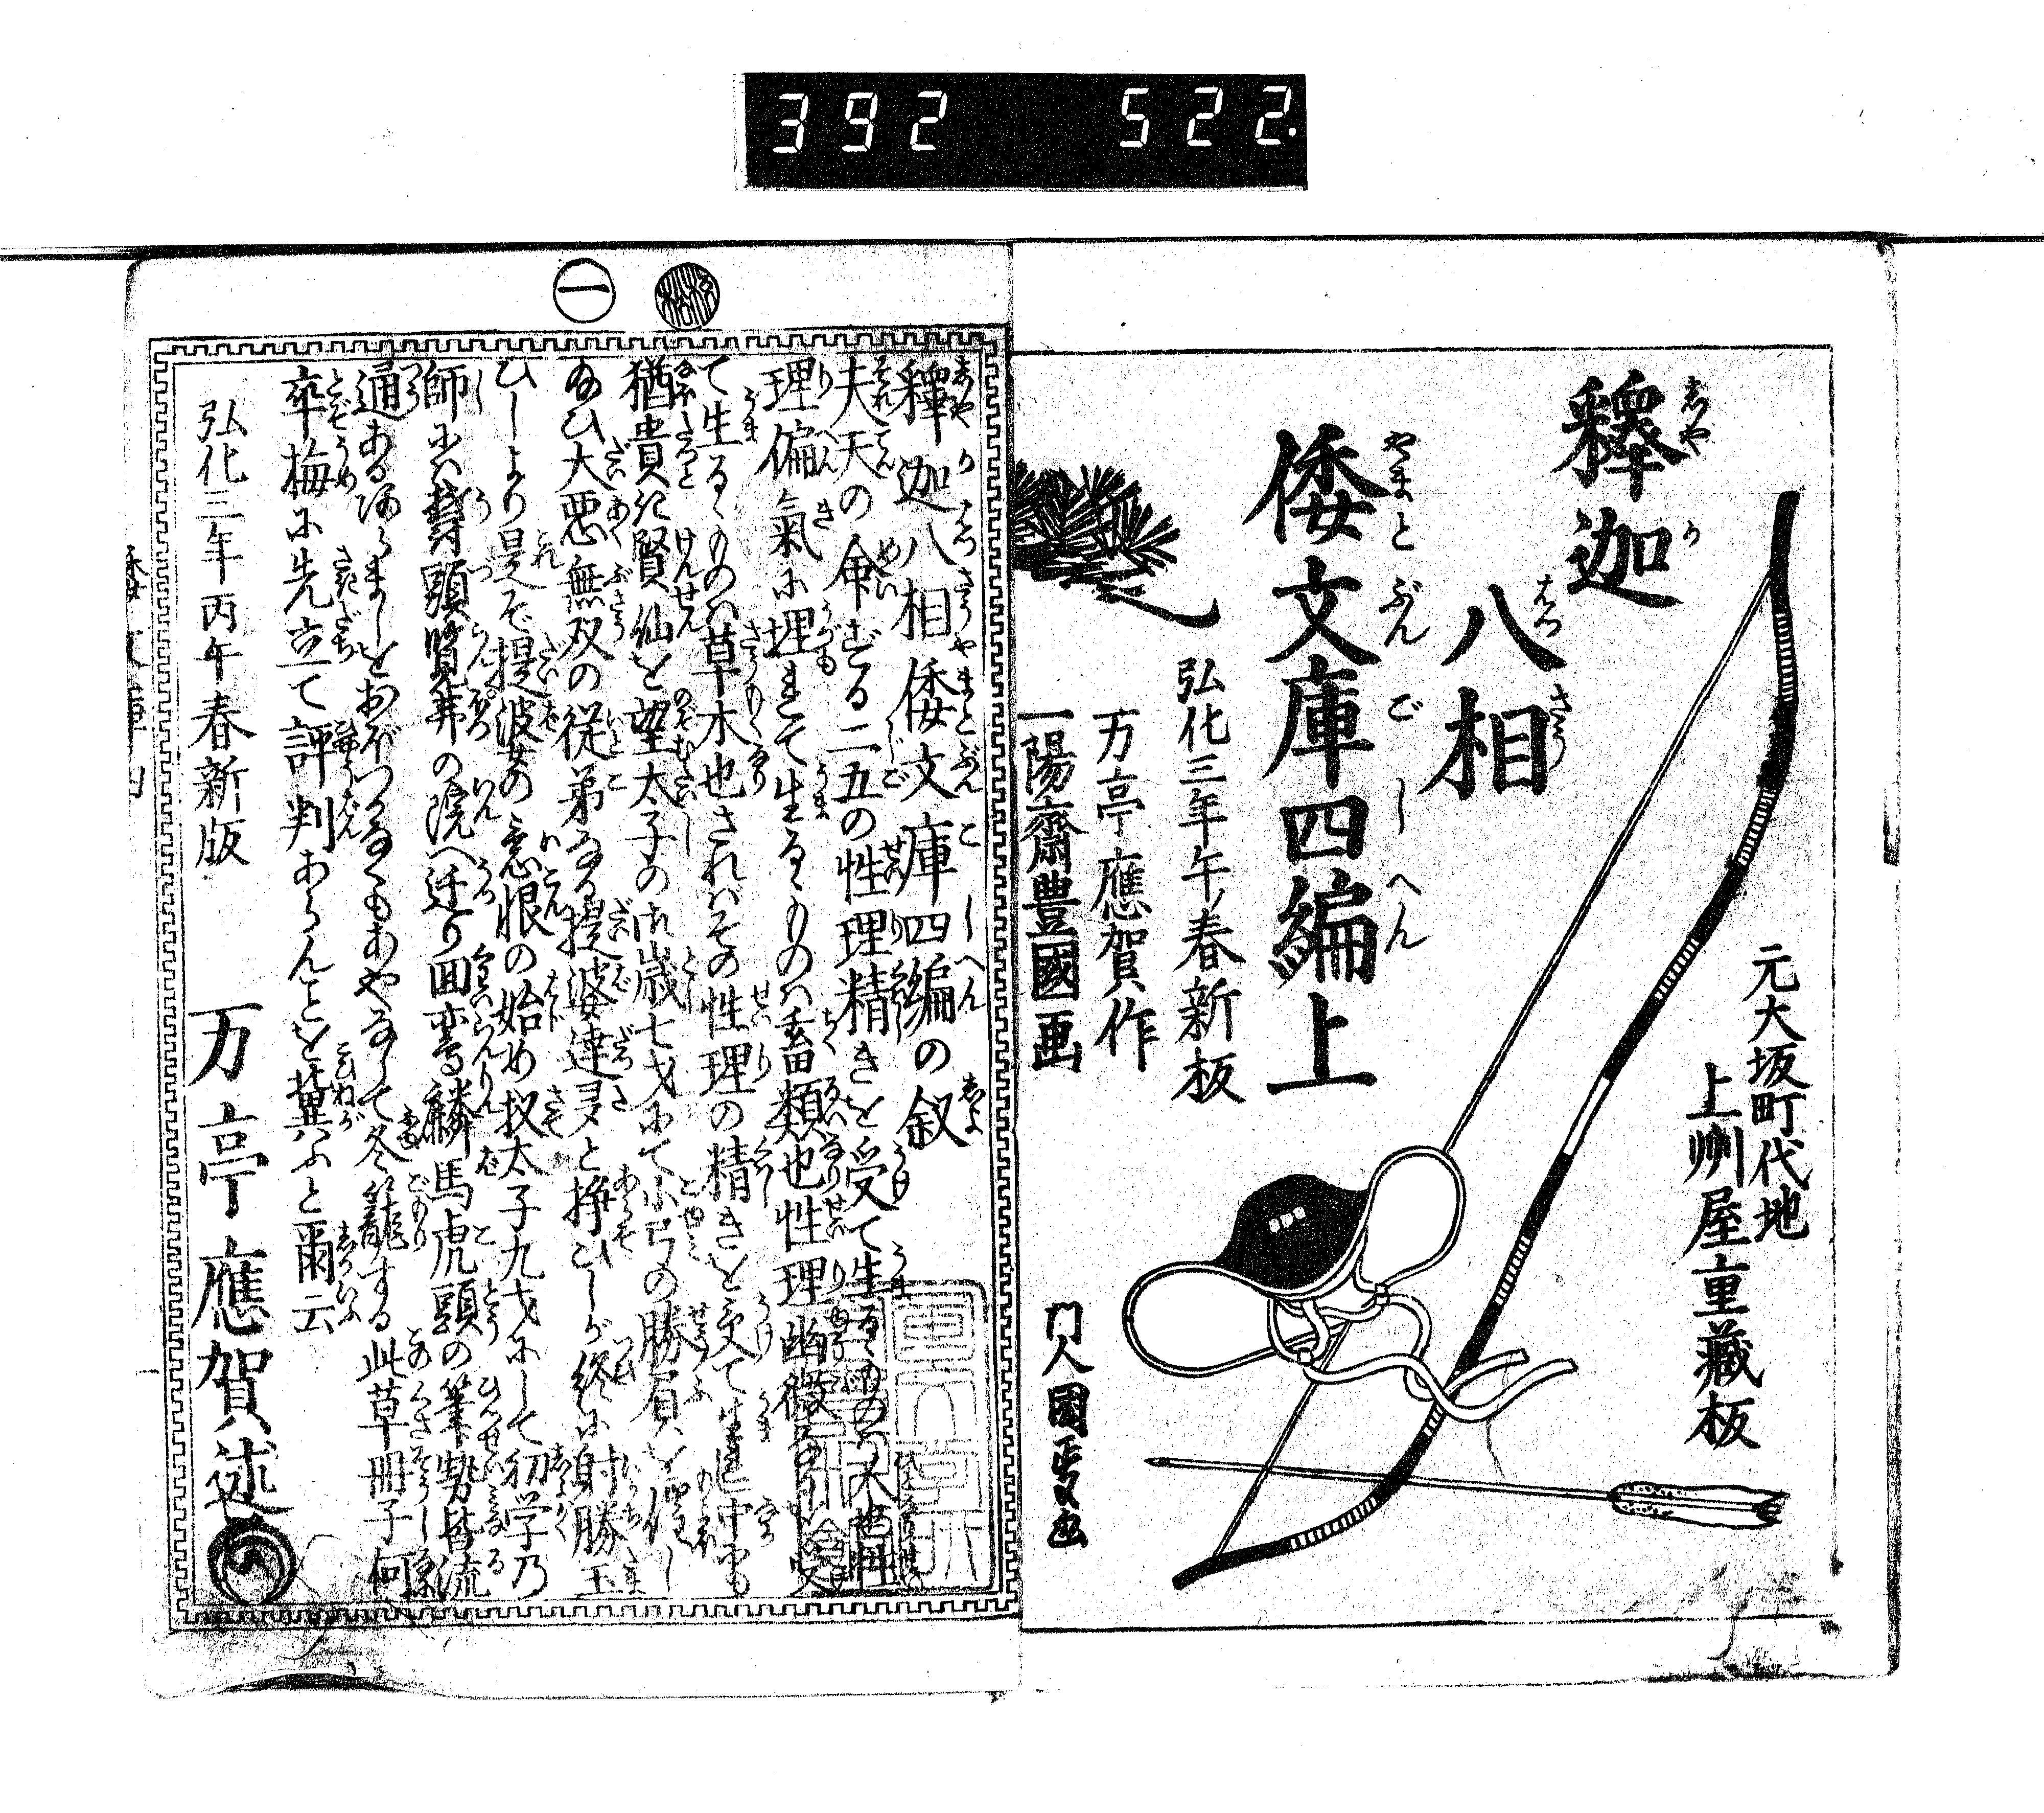 392 522.
釋迦
八相
倭文庫四編上
弘化三年午ノ春新板
万亭應賀作
一陽齋豊國画
元大坂町代地
上州屋重藏板
一
釋迦八相倭文庫四編の叙
夫天の命ずる二五の性理精きを受て生るゝものハ人也性
理偏氣に埋れて生るゝものハ畜類也性理幽微を受
て生るゝものハ草木也されバその性理の精きを受て生し中にも
猶貴き賢仙を望太子の御歳七才にて小弓の勝負を催し
給ひ大悪無双の従弟なる提婆達多と挣ひしが終に射勝玉
ひしより是ぞ提婆の意恨の始め扨太子九才にして初学乃
師にハ欝頭質弗の院へ迂り回鸞麟馬虎頭の筆勢皆流
通あるあらましをおぼつかなくもあやなして冬籠する此草冊子何
卒梅に先立て評判あらんことを冀ふと爾云
弘化三年丙午春新版
万亭應賀述